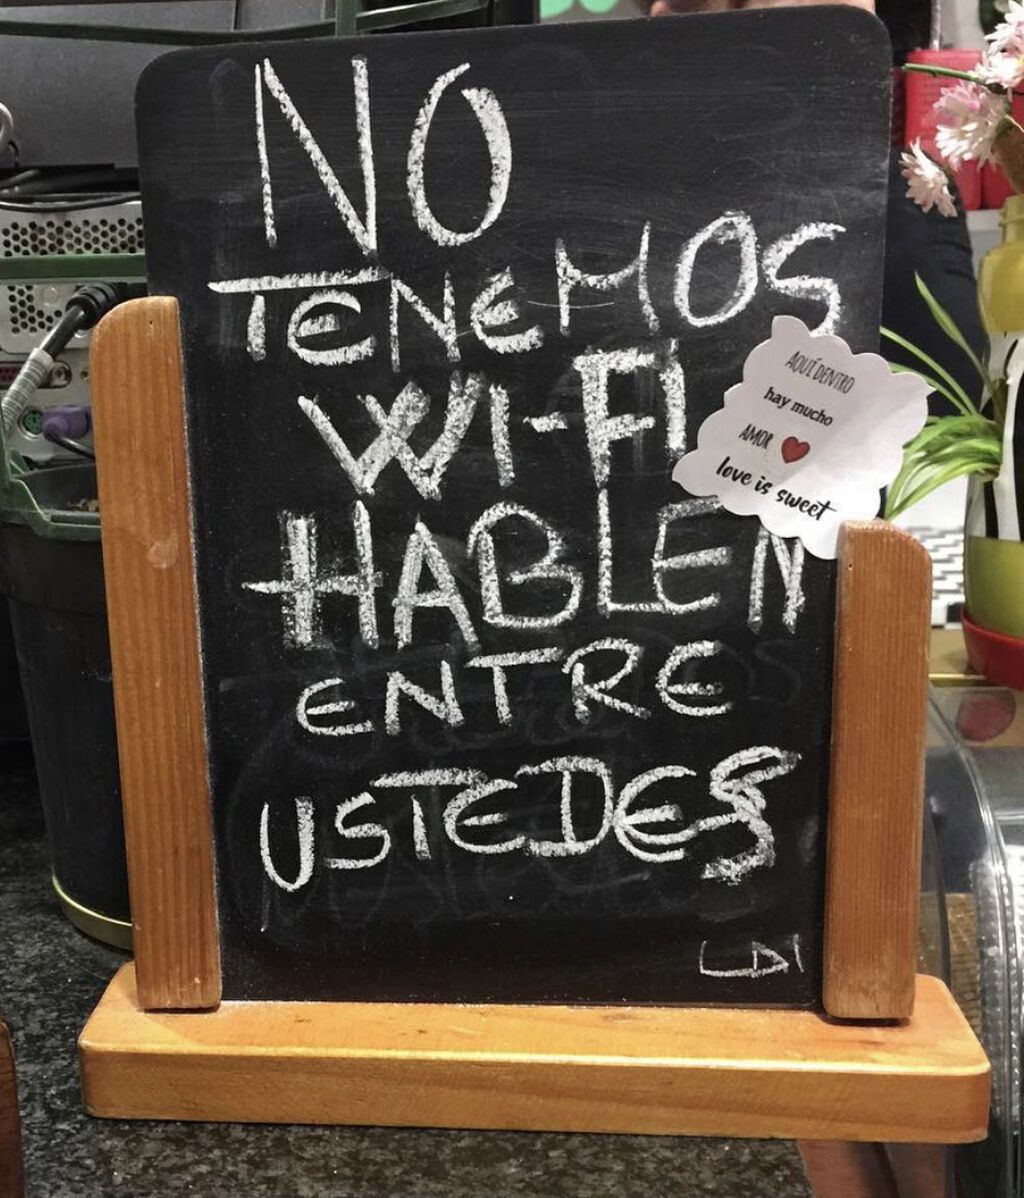 NO
TENEMOS
WI-FI
HABLEN
ENTRE
USTEDES
LDI
AQUÍ DENTRO
hay mucho
AMOR
love is sweet